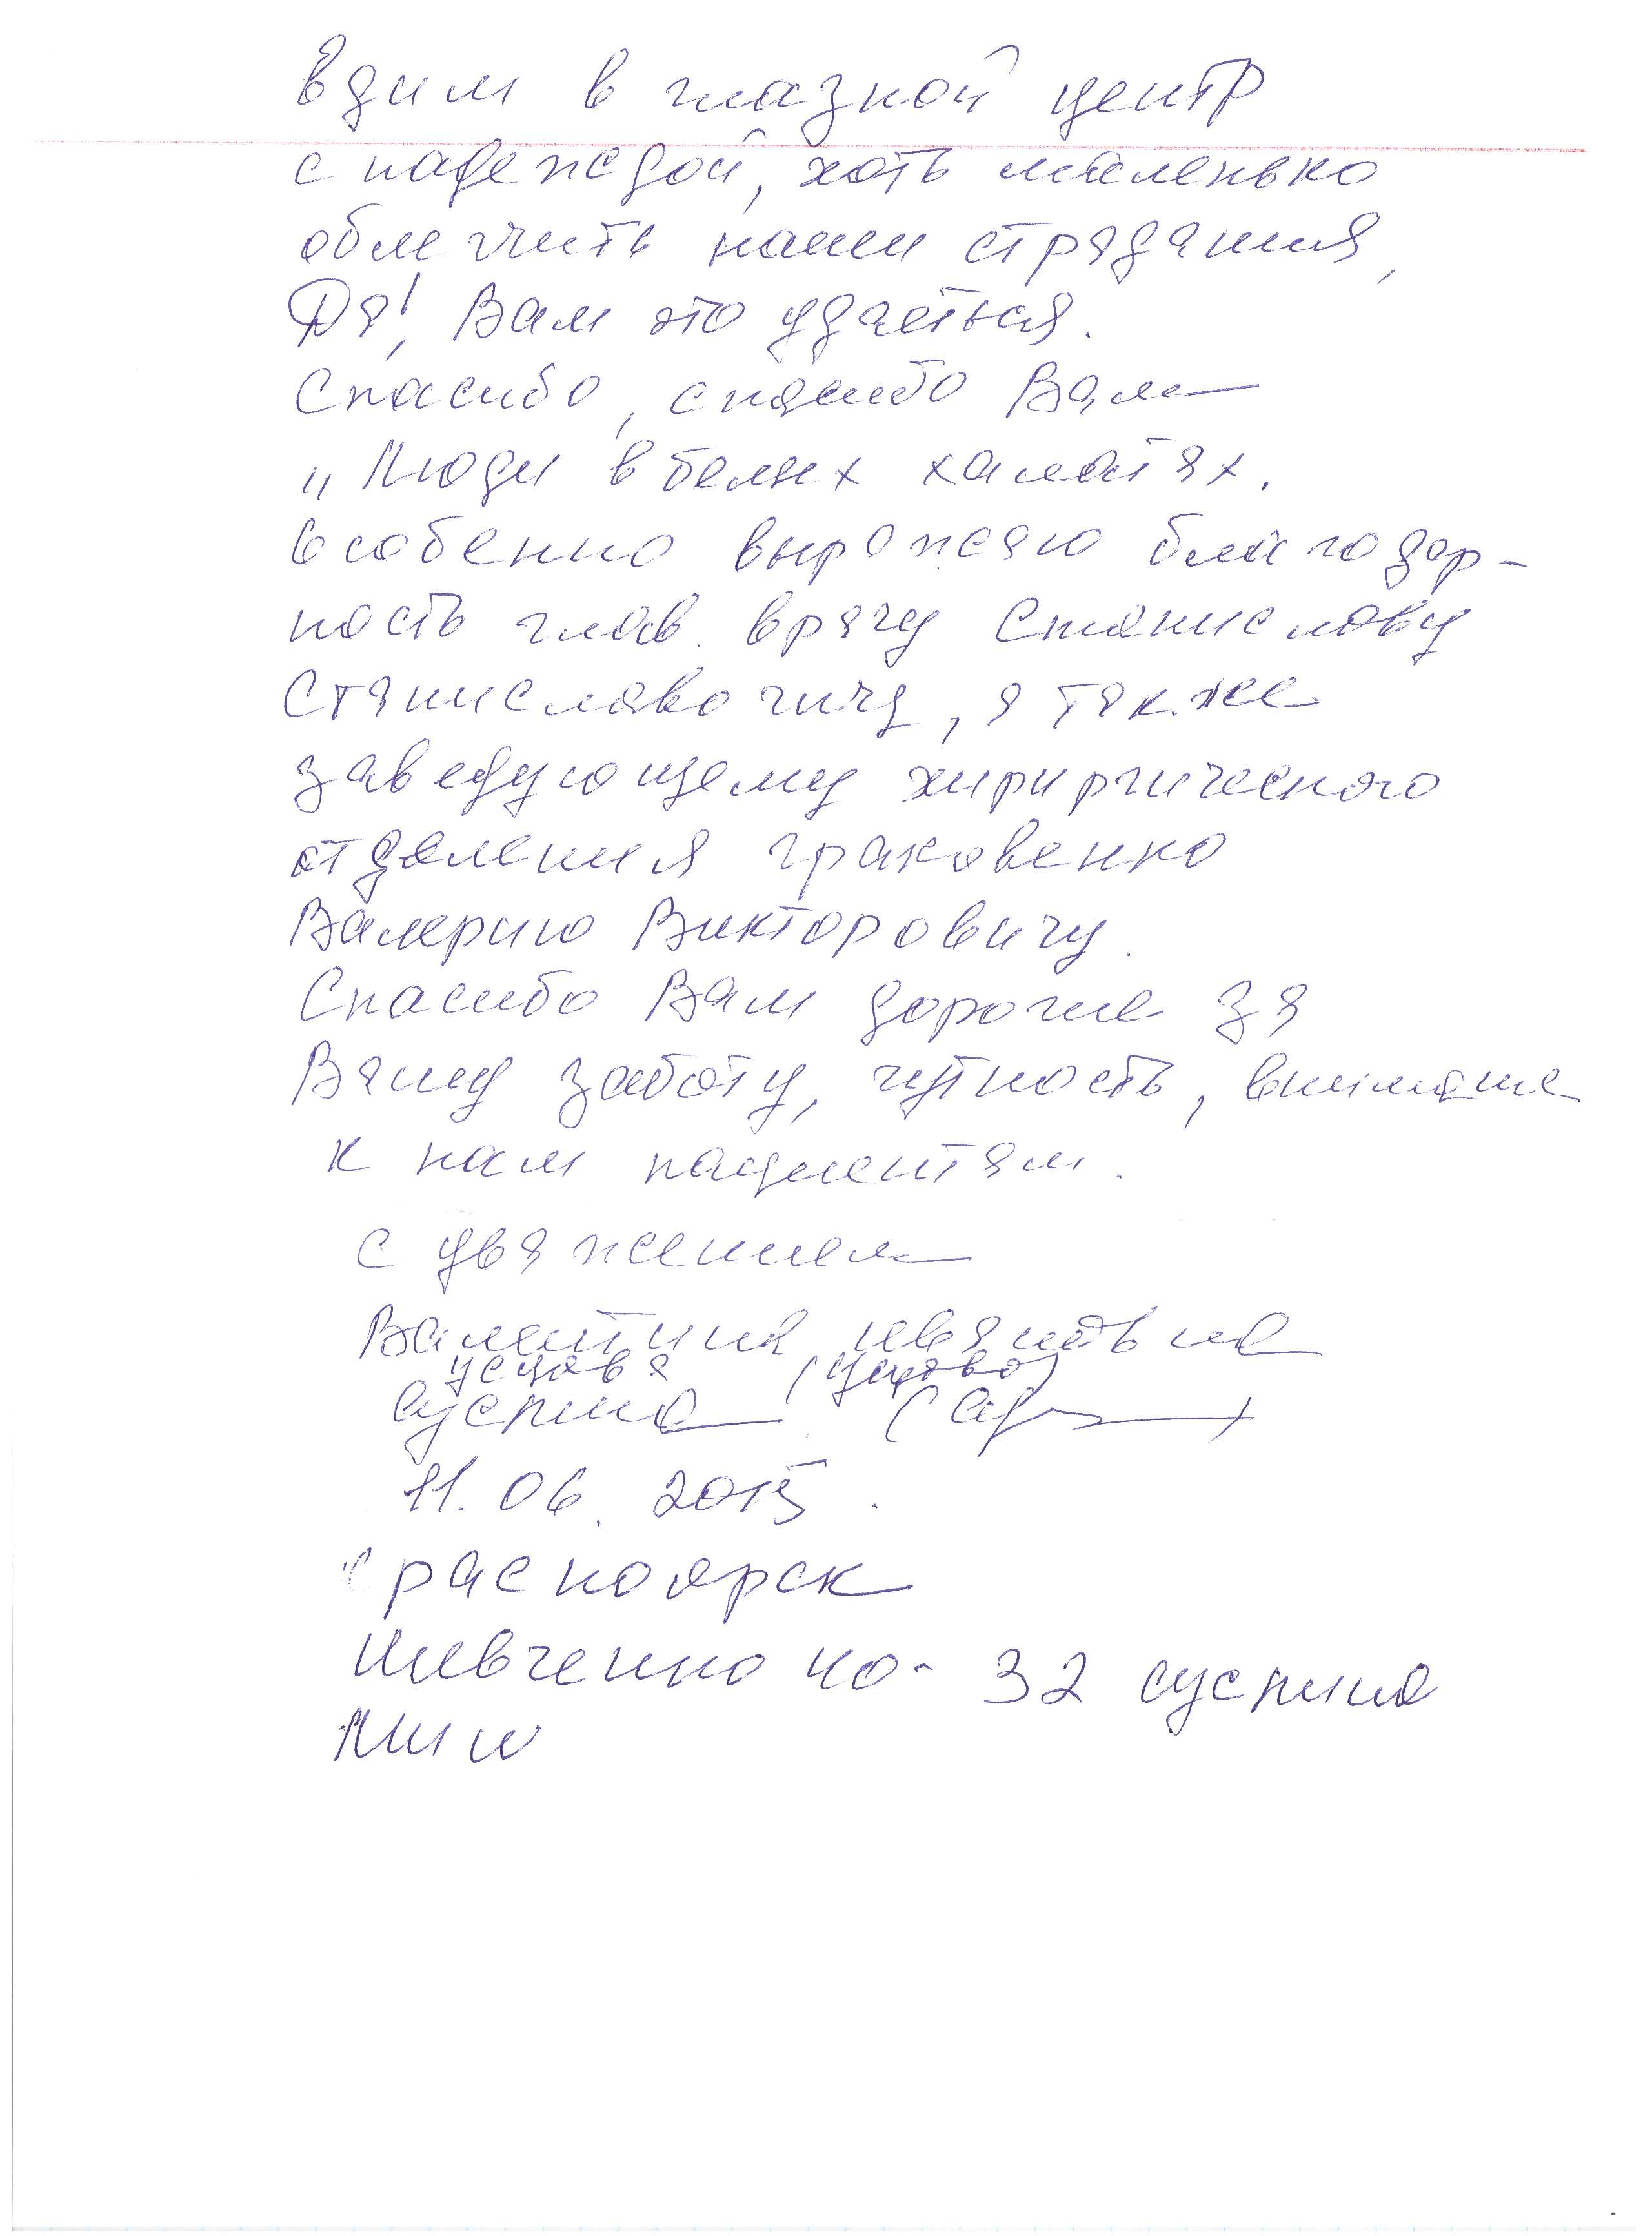 вдим в глазной центр
с надеждой, хоть маленько
облегчить наши страдания,
Да!, Вам это удаеться.
Спасибо, спасибо Вам
„Люди в белых халатах.
Особенно выражаю благодар-
ность глав. врачу Станиславу
Станиславовичу, а так.же
заведующему хирургического
отделения Граковенко
Валерию Викторовичу.
Спасибо Вам дорогие за
Вашу заботу, чуткость, внимание
к нам пациентам.
С уважением
Валентина Ивановна
Усцова (Усцова)
Суспина
11.06.2015.
расноярск
Шевченко 40- 32 Суспина